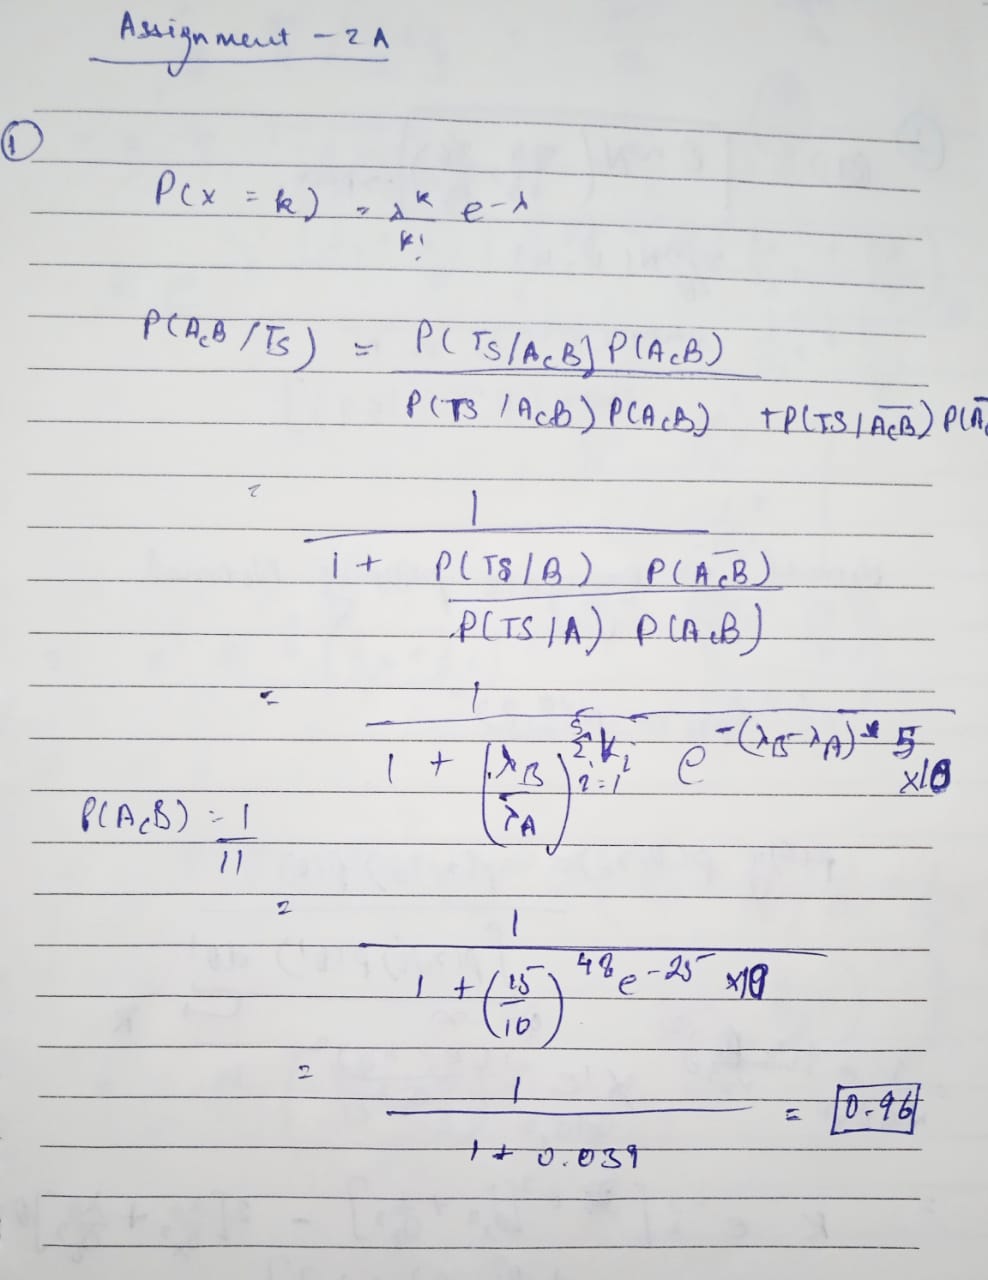 Assignment - 2A
①
P(x = k) = λ^k / k! e^-λ
P(AcB / Ts) = P(Ts/AcB) P(AcB)
P(TS / AcB) P(AcB) + P(TS / A̅c̅B̅) P(A̅c
= 1
1 + P(TS / B) P(A̅c̅B)
P(TS / A) P(AcB)
= 1
1 + (λB / λA)^{5 Σ i=1 ki} e^{-(λB - λA) * 5} x10
P(AcB) = 1/11
= 1
1 + (15/10)^48 e^-25 x10
= 1 = 0.96
1 + 0.039